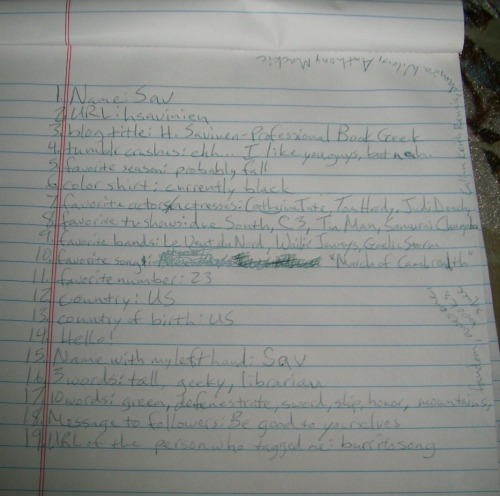 1. Name: Sav
2. URL: hsavinien
3. blog title: H. Savinen-Professional Book Geek
4. tumblr crushes: ehh... I like you guys, but nah.
5. favorite season: probably fall
6. color shirt: currently black
7. favorite actors/actresses: Catherine Tate, Tom Hardy, Judi Dench,
Anthony Mackie
8. favorite tv shows: due South, C3, Tin Man, Samurai Champloo
9. favorite bands: Le Vent du Nord, Wailin' Jennys, Gaelic Storm
10. favorite song: "March of Cambreadth"
11. favorite number: 23
12. Country: US
13. country of birth: US
14. Hello!
15. Name with my left hand: Sav
16. 3 words: tall, geeky, librarian
17. 10 words: green, defenestrate, sword, ship, honor, mountains,
18. Message to followers: Be good to yourselves
19. URL of the person who tagged me: burritosong